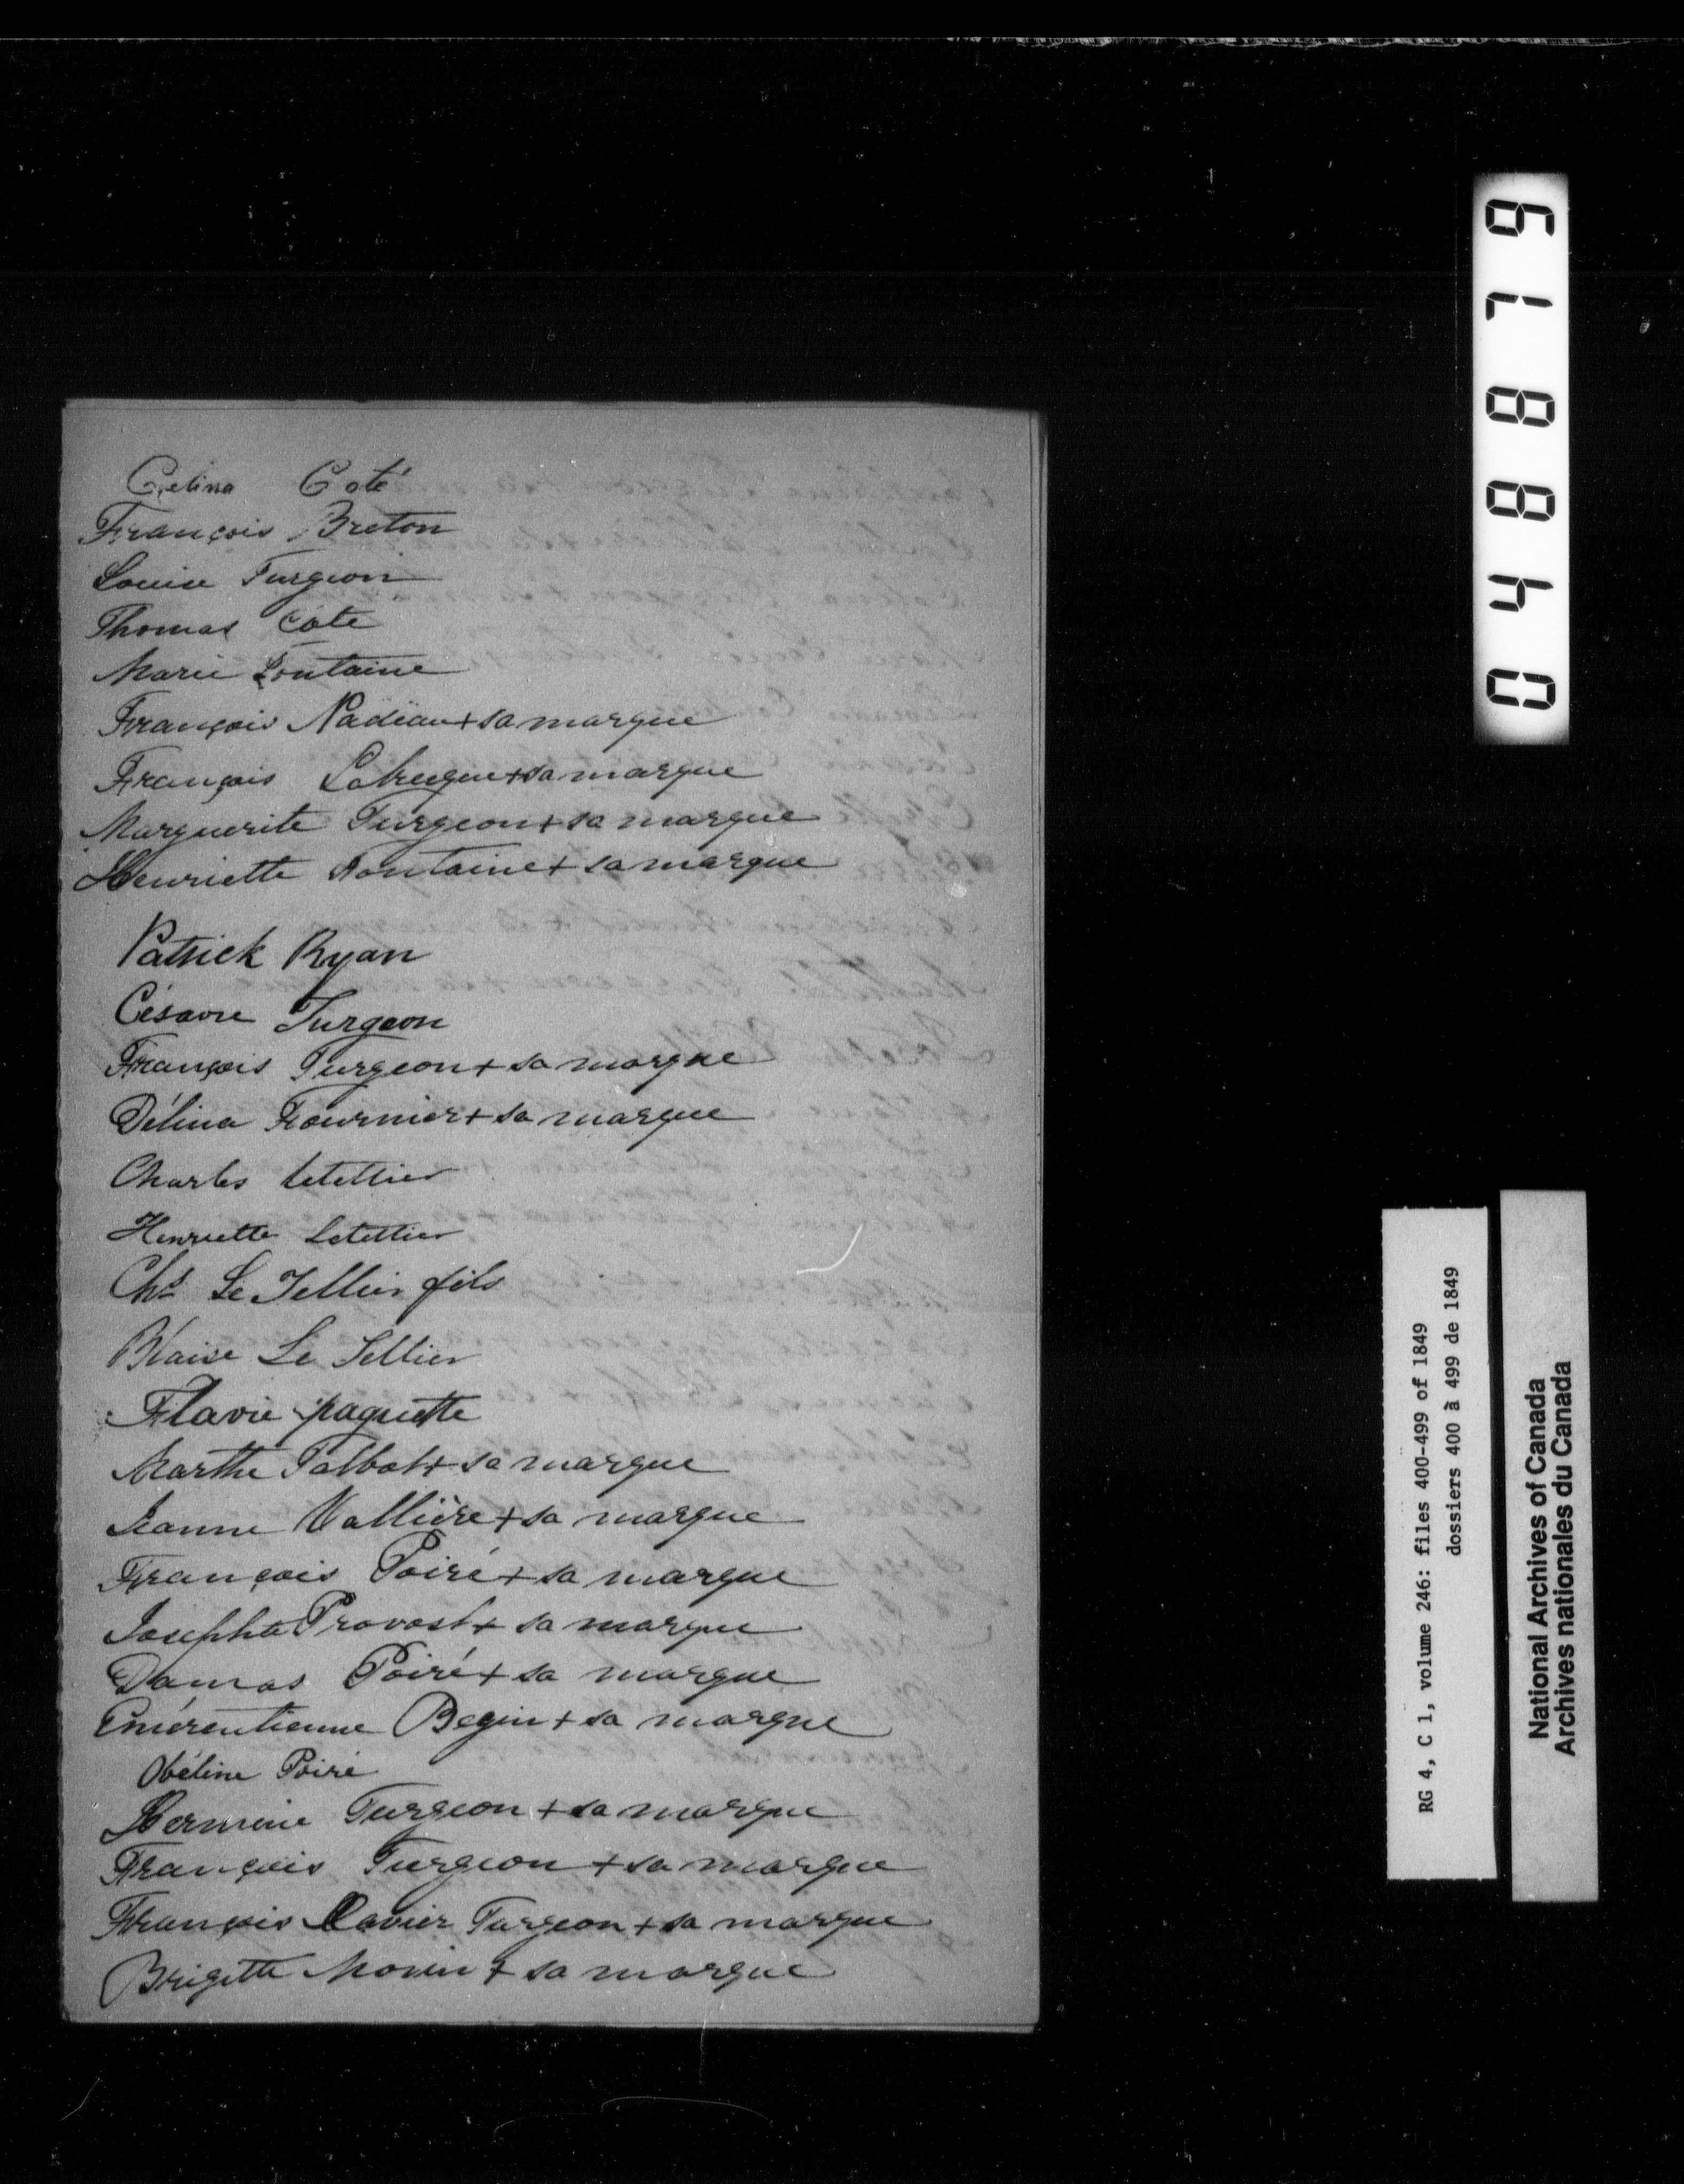 Celina Coté
François Breton
Louise Turgeon
Thomas Cote
Marie Fontaine
François Nadeau + sa marque
François Labrecque + sa marque
Marguerite Turgeon + sa marque
Henriette Fontaine + sa marque
Patrick Ryan
Césarre Turgeon
François Turgeon + sa marque
Délina Fournier + sa marque
Charles Letellier
Henriette Letellier
Chs Le Tellier fils
Blaise Le Tellier
Flavie paquette
Marthe Talbot + sa marque
Jeanne Vallière + sa marque
François Poiré + sa marque
Josephte Provost + sa marque
Damas Poiré + sa marque
Emérentienne Begin + sa marque
Obéline Poiré
Hermine Turgeon + sa marque
François Turgeon + sa marque
François Xavier Turgeon + sa marque
Brigitte Morin + sa marque
048879
RG 4, C 1, volume 246: files 400-499 of 1849
dossiers 400 à 499 de 1849
National Archives of Canada
Archives nationales du Canada